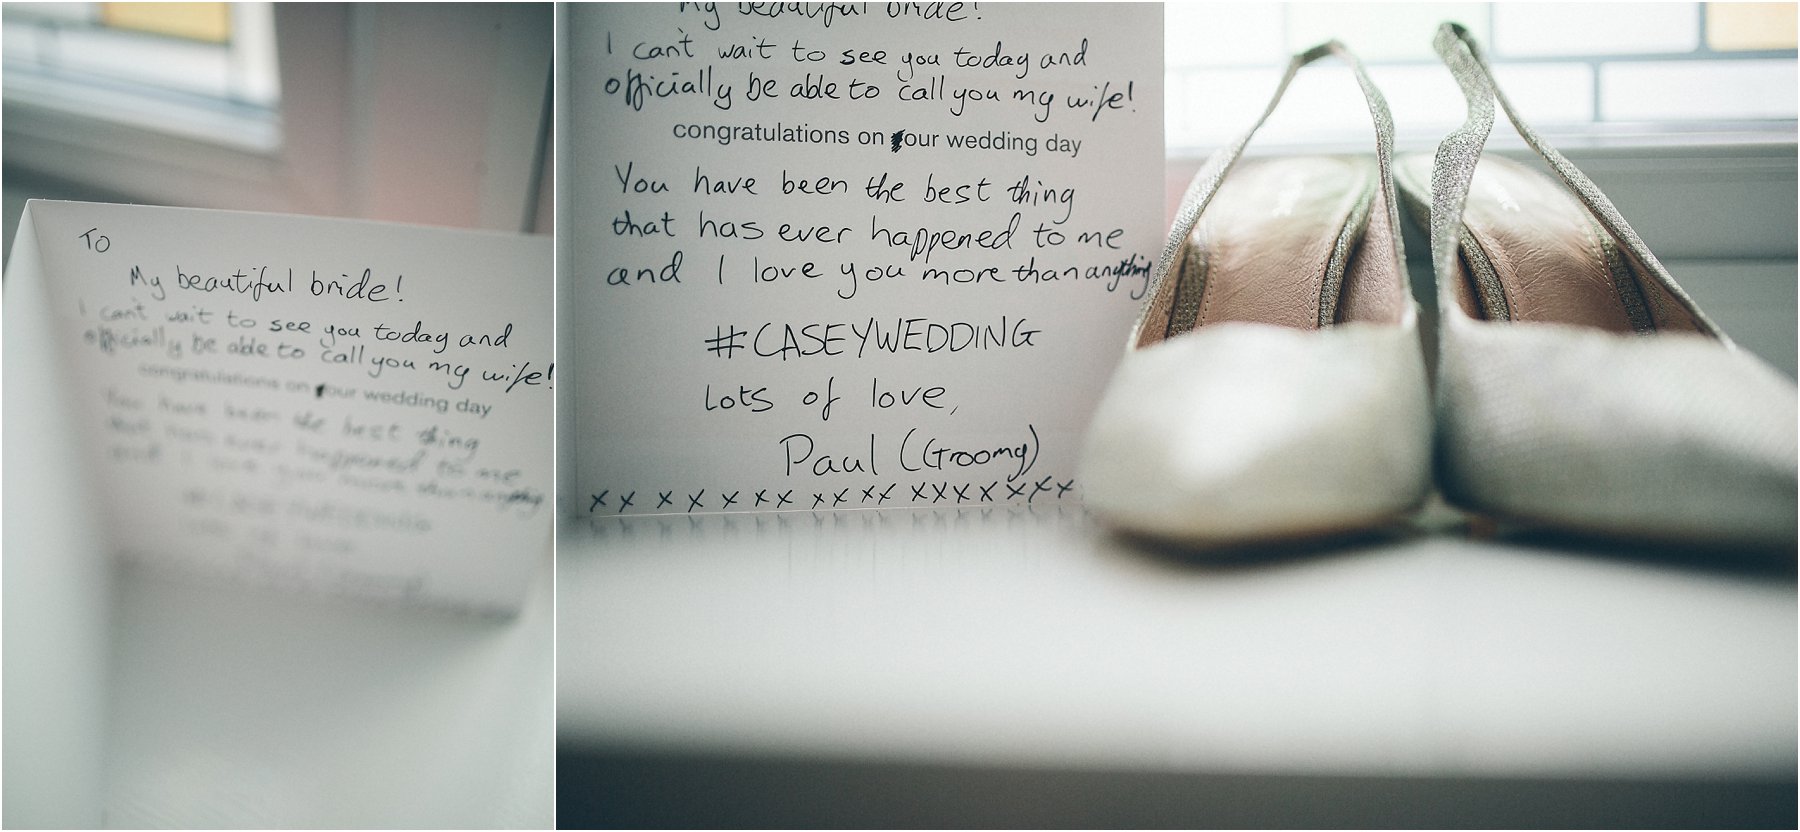 To
My beautiful bride!
I can't wait to see you today and
officially be able to call you my wife!
congratulations on our wedding day
You have been the best thing
My beautiful bride!
I can't wait to see you today and
officially be able to call you my wife!
congratulations on our wedding day
You have been the best thing
that has ever happened to me
and I love you more than anything
#CASEYWEDDING
Lots of love,
Paul (Groomy)
xx x x x xx xx xx xxxx xxx